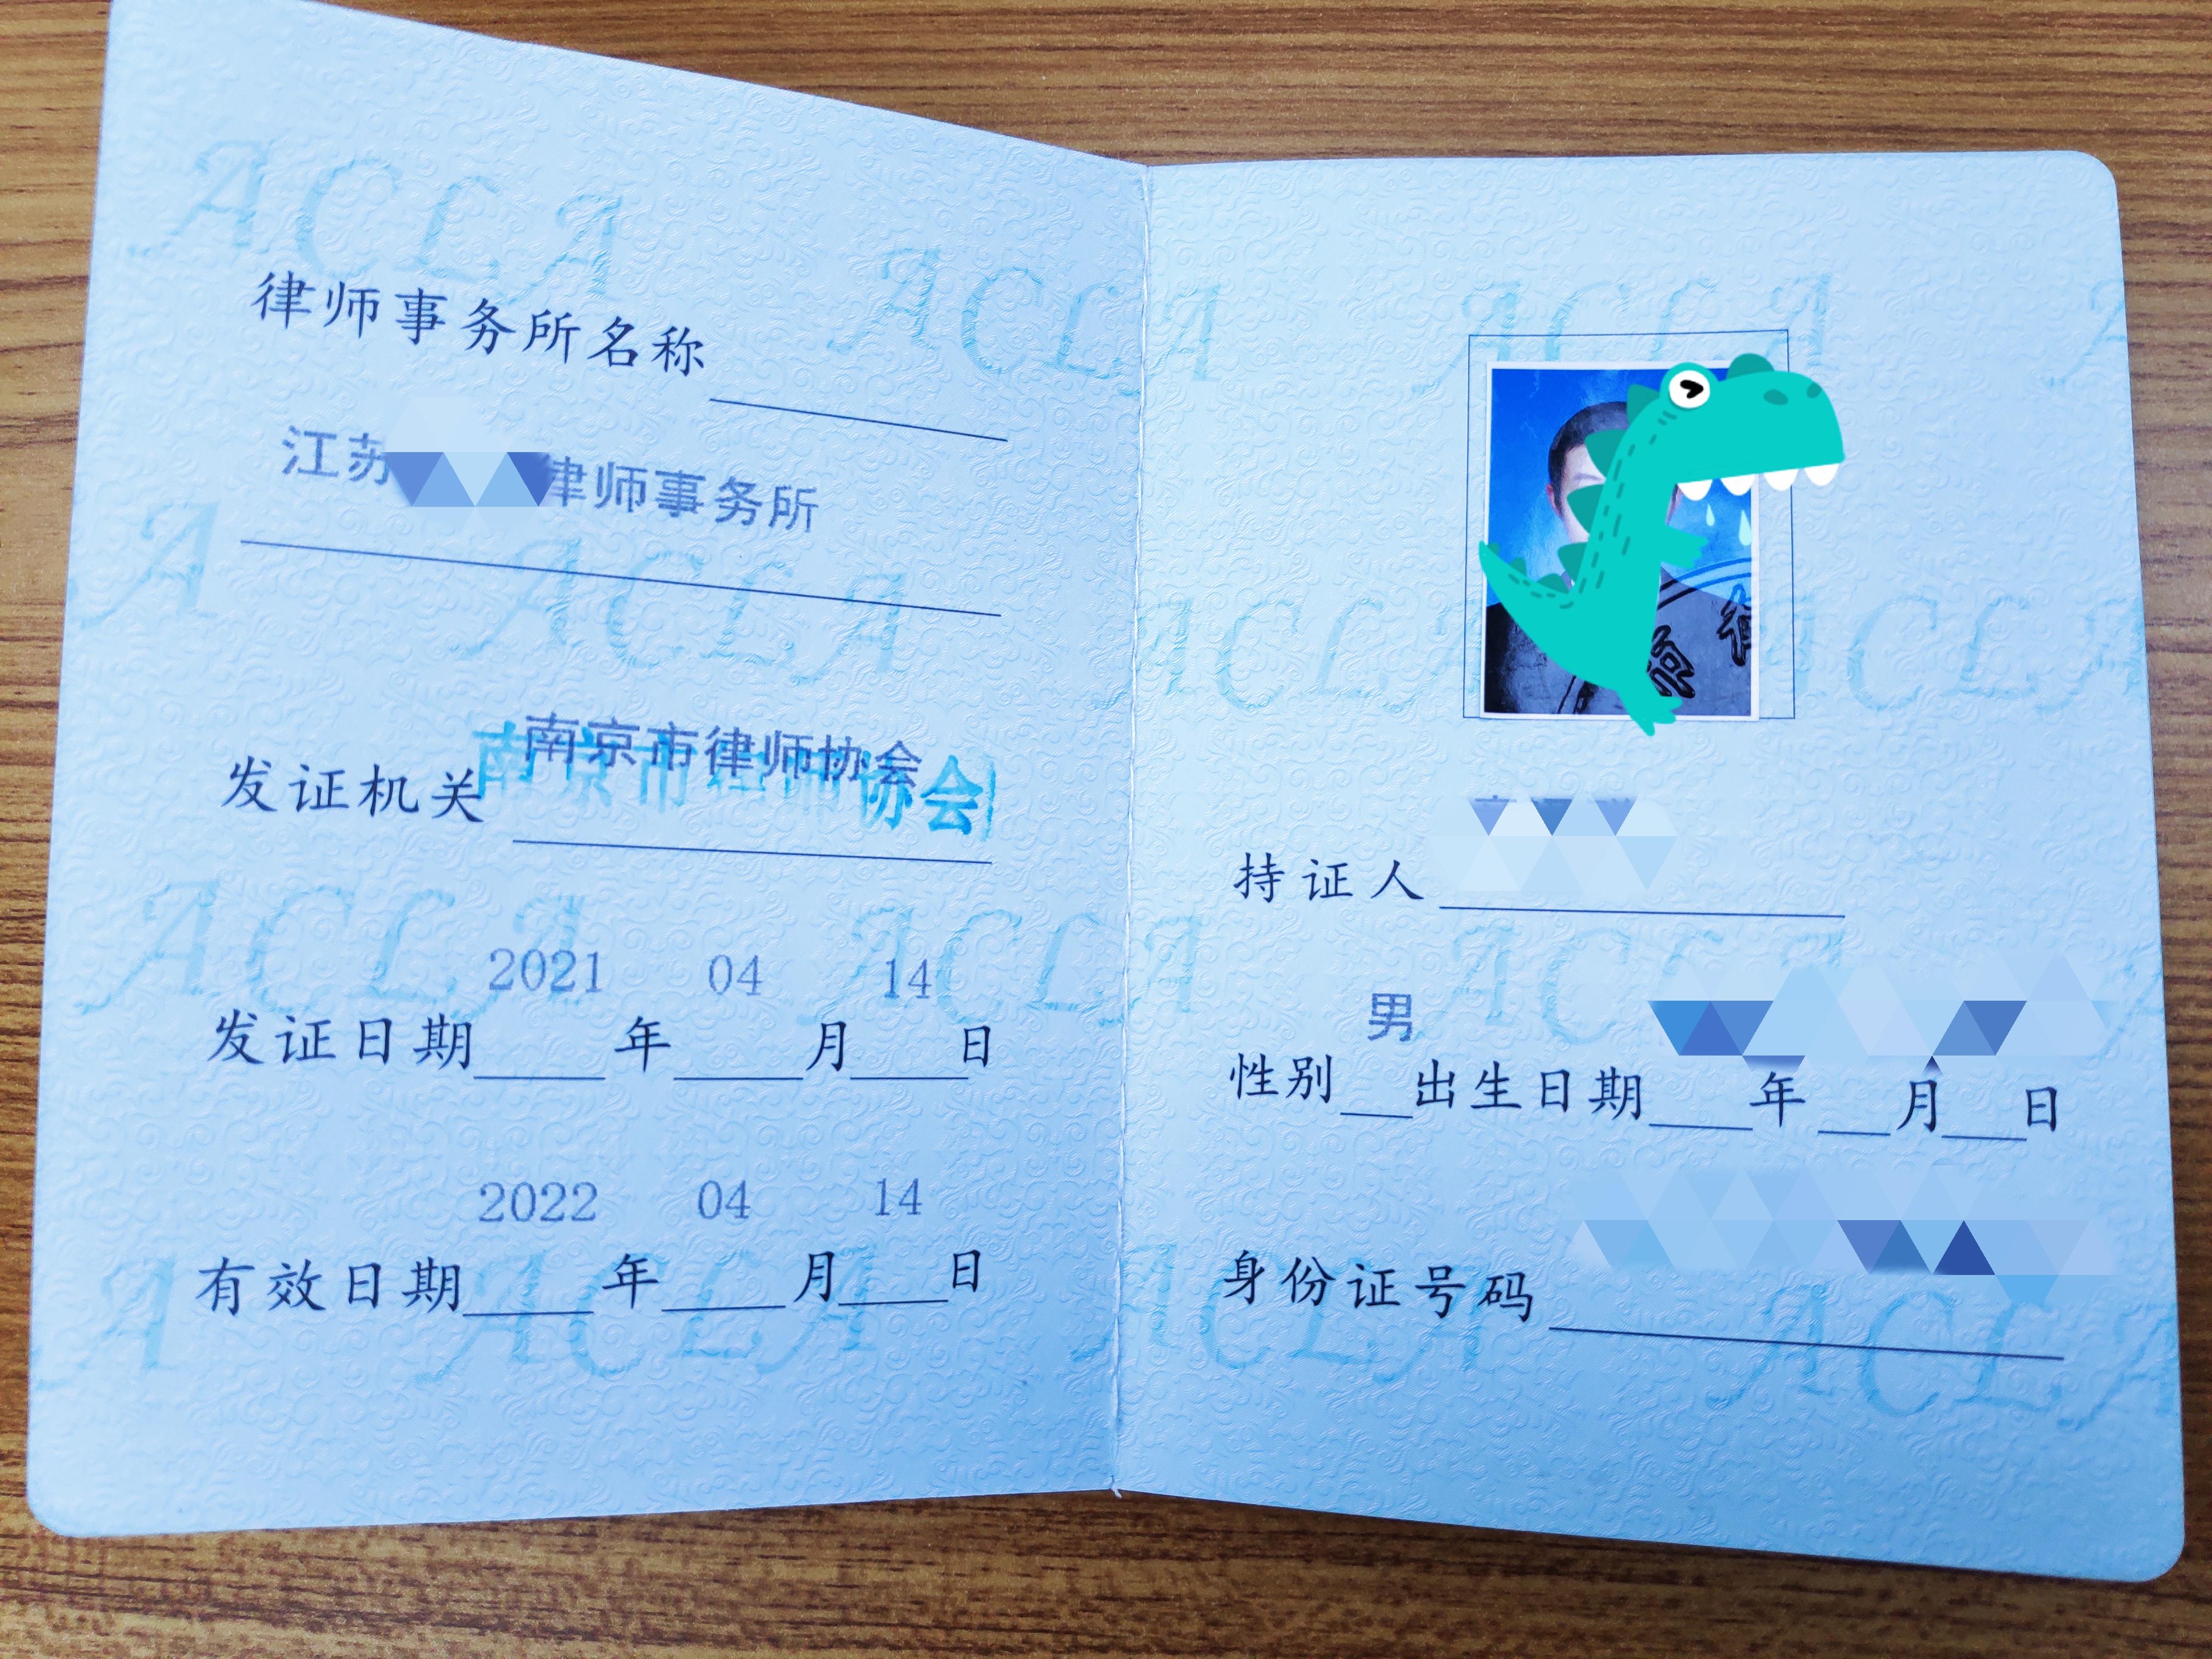 ACLA
ACLA
律师事务所名称
江苏 律师事务所
A
ACLA
南京市律师协会
发证机关 南京市律师协会
ACLA
ACLA
2021 04 14
发证日期 年 月 日
2022 04 14
有效日期 年 月 日
A
ACLA
ACLA
ACLA
ACLA
持证人
ACLA
男
性别 出生日期 年 月 日
身份证号码
ACLA
ACLA